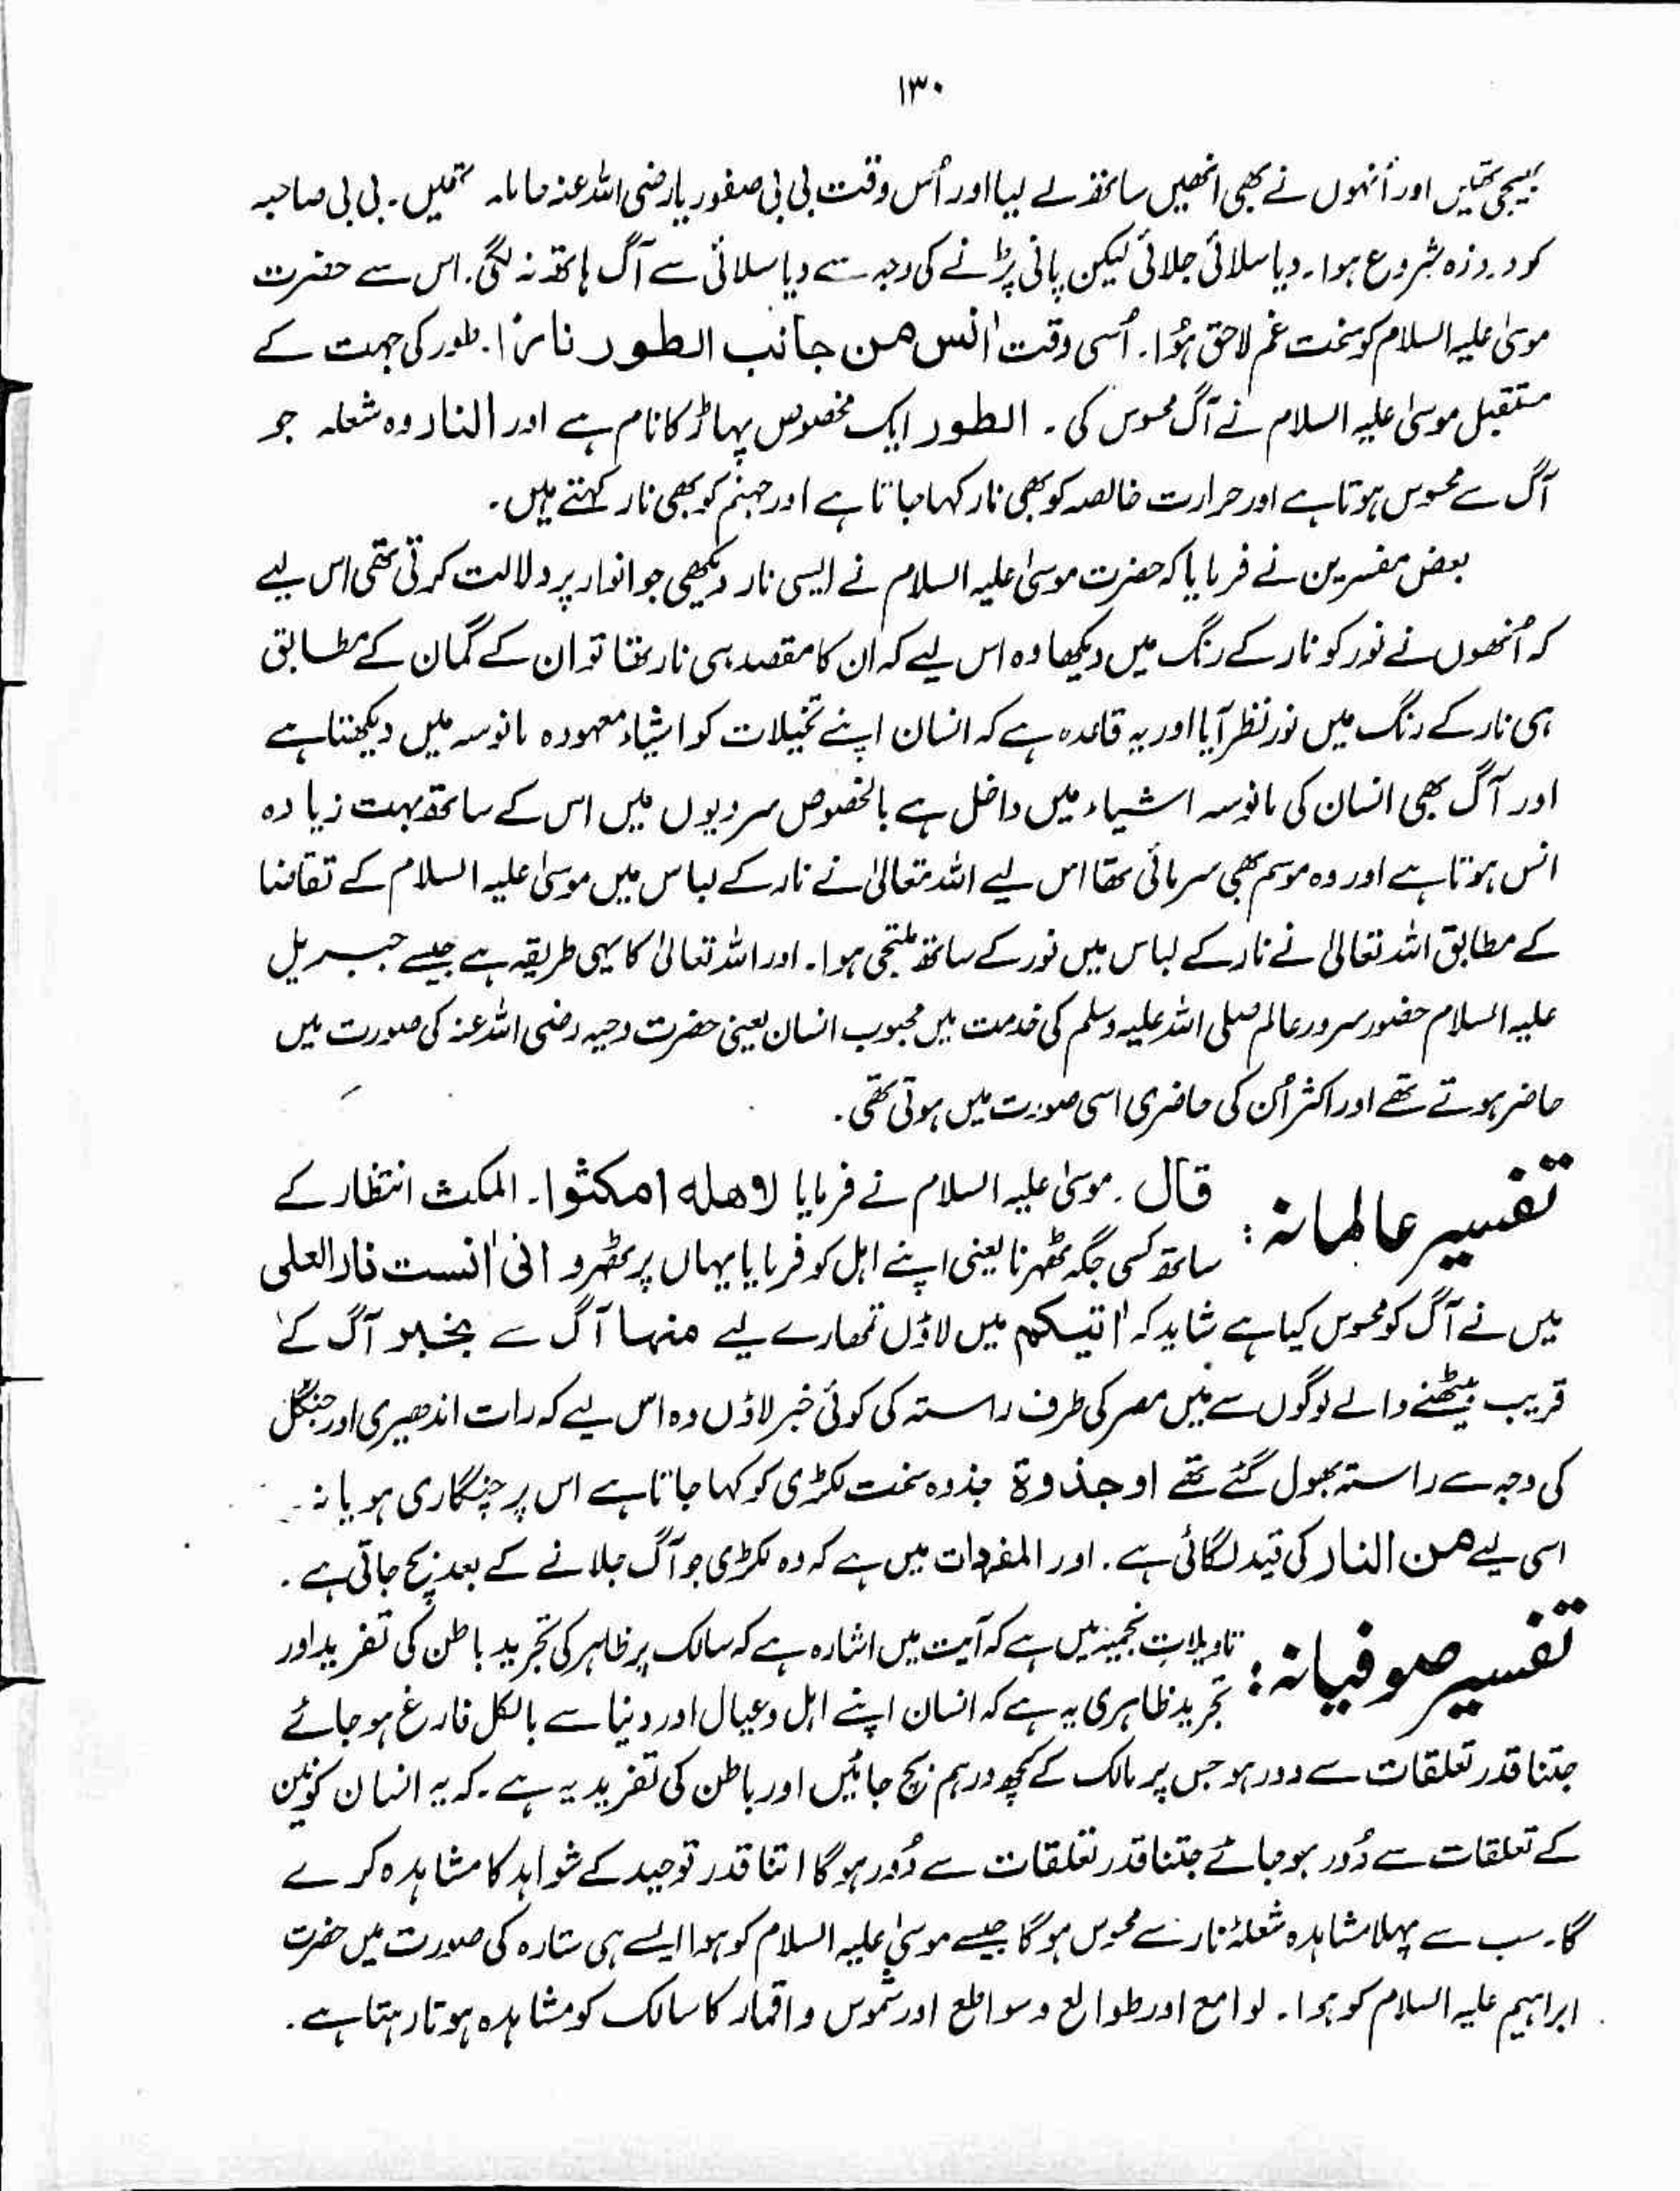 ۱۳۰
بھیجی تھیں اور اُنہوں نے بھی انھیں ساتھ لے لیا اور اُس وقت بی بی صفوریا رضی اللہ عنہ حاملہ تھیں۔ بی بی صاحبہ
کو دردِ زہ شروع ہوا۔ دیا سلائی جلائی لیکن پانی پڑنے کی وجہ سے دیا سلائی سے آگ ہاتھ نہ لگی۔ اس سے حضرت
موسیٰ علیہ السلام کو سخت غم لاحق ہُوا۔ اُسی وقت اٰنس من جانب الطور نارًا۔ طور کی جہت کے
مستقبل موسیٰ علیہ السلام نے آگ محسوس کی۔ الطور ایک مخصوص پہاڑ کا نام ہے اور النار وہ شعلہ جو
آگ سے محسوس ہوتا ہے اور حرارت خالصہ کو بھی نار کہا جاتا ہے اور جہنم کو بھی نار کہتے ہیں۔
بعض مفسرین نے فرمایا کہ حضرت موسیٰ علیہ السلام نے ایسی نار دیکھی جو انوار پر دلالت کرتی تھی اس لیے
کہ اُنھوں نے نور کو نار کے رنگ میں دیکھا وہ اس لیے کہ ان کا مقصد ہی نار تھا تو ان کے گمان کے مطابق
ہی نار کے رنگ میں نور نظر آیا اور یہ قاعدہ ہے کہ انسان اپنے تخیلات کو اشیاء معہودہ مانوسہ میں دیکھتا ہے
اور آگ بھی انسان کی مانوسہ اشیاء میں داخل ہے بالخصوص سردیوں میں اس کے ساتھ بہت زیادہ
انس ہوتا ہے اور وہ موسم بھی سرمائی تھا اس لیے اللہ تعالیٰ نے نار کے لباس میں موسیٰ علیہ السلام کے تقاضا
کے مطابق اللہ تعالیٰ نے نار کے لباس میں نور کے ساتھ ملتجی ہوا۔ اور اللہ تعالیٰ کا یہی طریقہ ہے جیسے جبریل
علیہ السلام حضور سرور عالم صلی اللہ علیہ وسلم کی خدمت میں محبوب انسان یعنی حضرت دحیہ رضی اللہ عنہ کی صورت میں
حاضر ہوتے تھے اور اکثر اُن کی حاضری اسی صورت میں ہوتی تھی۔
تفسیر عالمانہ: قال۔ موسیٰ علیہ السلام نے فرمایا لاھلہ امکثوا۔ المکث انتظار کے
ساتھ کسی جگہ ٹھہرنا یعنی اپنے اہل کو فرمایا یہاں پر ٹھہرو انی اٰنست نارالعلی
میں نے آگ کو محسوس کیا ہے شاید کہ اٰتیکم میں لاؤں تمھارے لیے منہا آگ سے بخبر آگ کے
قریب بیٹھنے والے لوگوں سے میں مصر کی طرف راستہ کی کوئی خبر لاؤں وہ اس لیے کہ رات اندھیری اور جنگل
کی وجہ سے راستہ بھول گئے تھے او جذوة جذوہ سخت لکڑی کو کہا جاتا ہے اس پر چنگاری ہو یا نہ۔
اسی لیے من النار کی قید لگائی ہے۔ اور المفردات میں ہے کہ وہ لکڑی جو آگ جلانے کے بعد بچ جاتی ہے۔
تفسیر صوفیانہ: تاویلاتِ نجمیہ میں ہے کہ آیت میں اشارہ ہے کہ سالک پر ظاہر کی تجرید باطن کی تفرید اور
تجرید ظاہری یہ ہے کہ انسان اپنے اہل و عیال اور دنیا سے بالکل فارغ ہو جائے
جتنا قدر تعلقات سے دور ہو جس پر مالک کے کچھ درہم بچ جائیں اور باطن کی تفرید یہ ہے۔ کہ یہ انسان کونین
کے تعلقات سے دُور ہو جائے جتنا قدر تعلقات سے دُور ہو گا اتنا قدر توحید کے شواہد کا مشاہدہ کرے
گا۔ سب سے پہلا مشاہدہ شعلۂ نار سے محسوس ہو گا جیسے موسیٰ علیہ السلام کو ہوا ایسے ہی ستارہ کی صورت میں حضرت
ابراہیم علیہ السلام کو ہوا۔ لوامع اور طوالع و سواطع اور شموس و اقمار کا سالک کو مشاہدہ ہوتا رہتا ہے۔